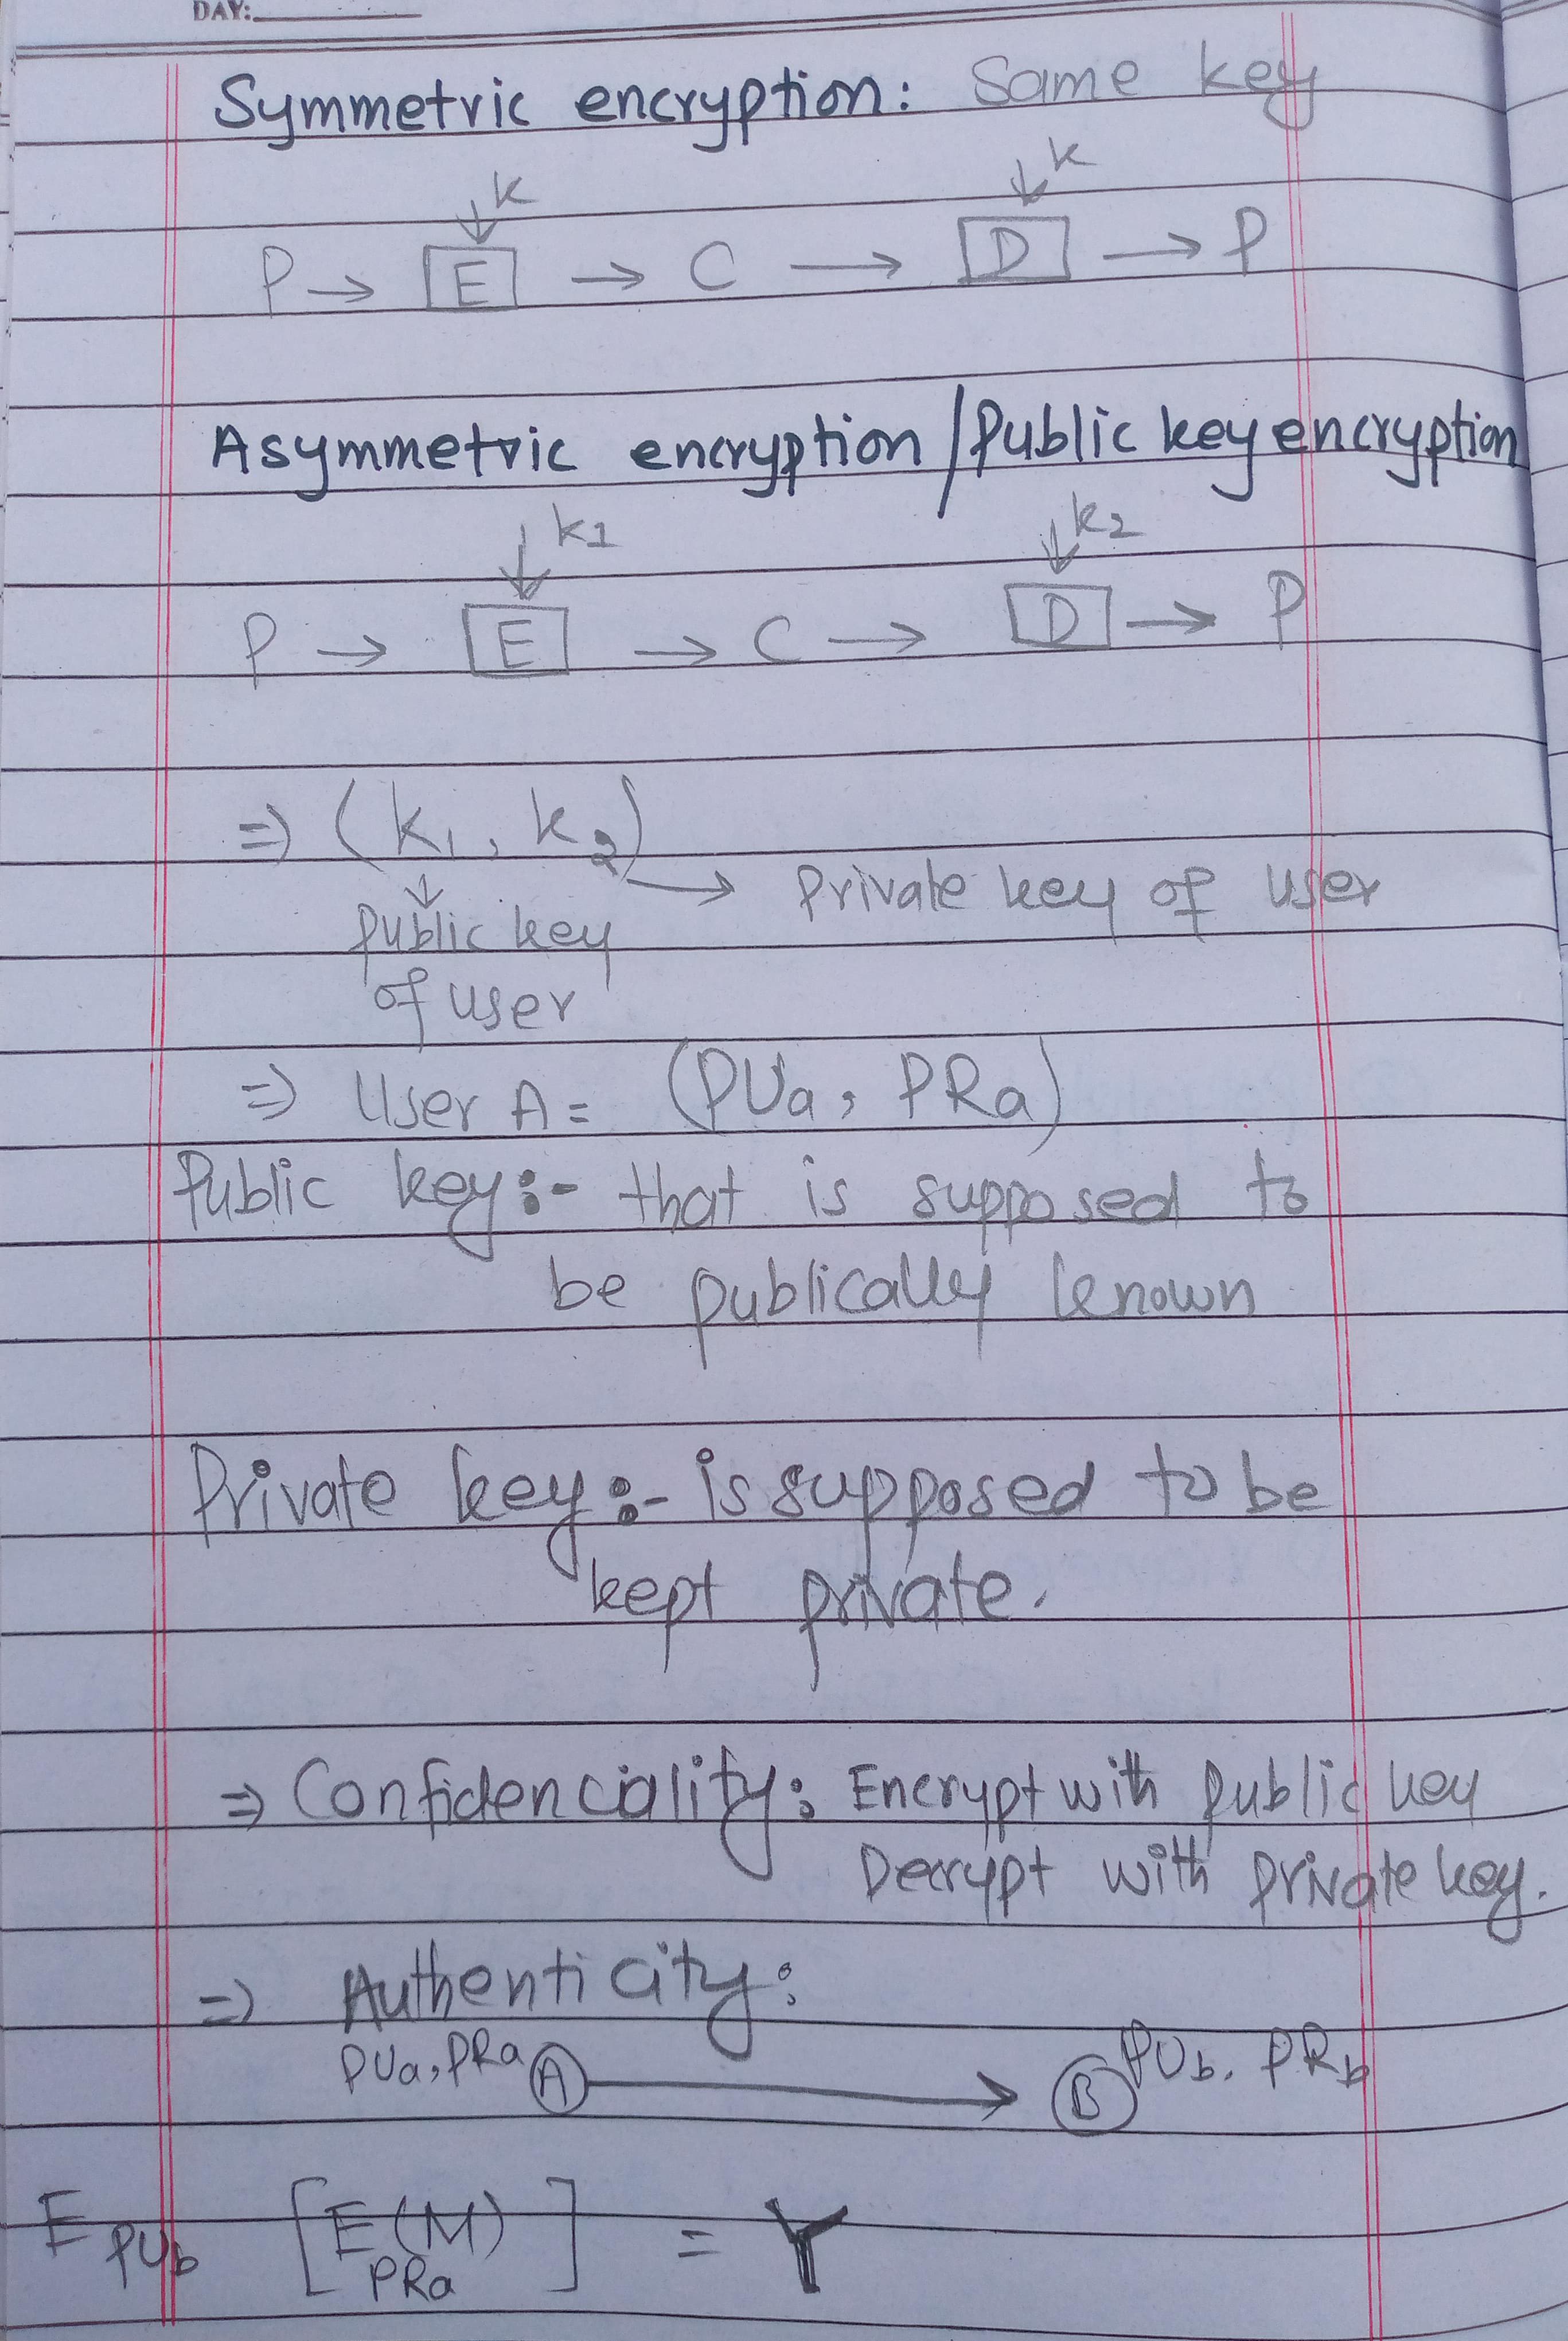 DAY:
Symmetric encryption: Same key
k k
P → E → C → D → P
Asymmetric encryption/Public key encryption
k1 k2
P → E → C → D → P
⇒ (k1, k2)
→ Private key of user
public key
of user
⇒ User A = (PUa, PRa)
Public key:- that is supposed to
be publically known
Private key:- is supposed to be
kept private.
⇒ Confidenciality: Encrypt with public key
Decrypt with private key.
⇒ Authenticity:
PUa, PRa A → B PUb, PRb
E PUb [E PRa (M)] = Y